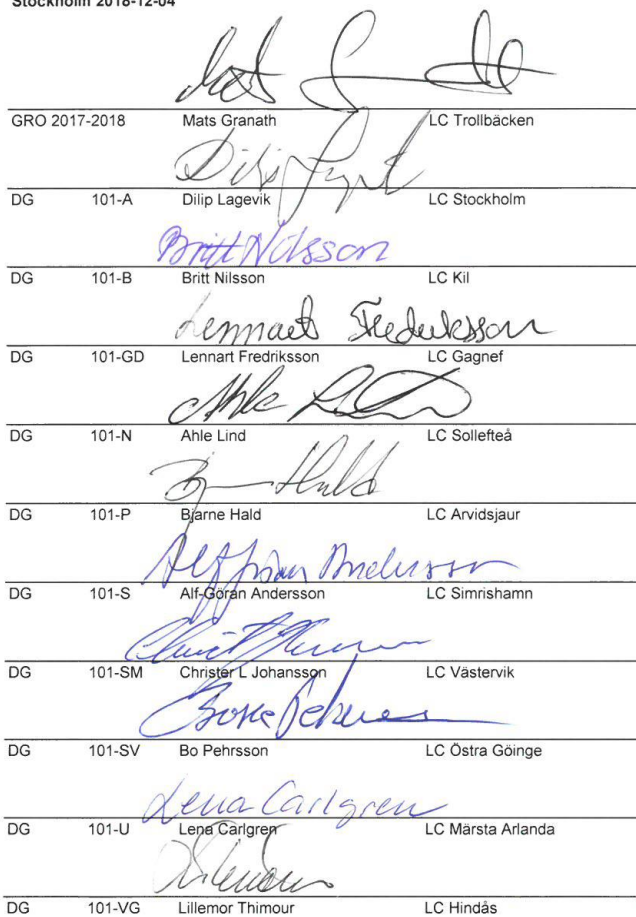 Stockholm 2018-12-04
Mats
GRO 2017-2018 Mats Granath LC Trollbäcken
Dilip
DG 101-A Dilip Lagevik LC Stockholm
Britt Nilsson
DG 101-B Britt Nilsson LC Kil
Lennart Fredriksson
DG 101-GD Lennart Fredriksson LC Gagnef
Ahle
DG 101-N Ahle Lind LC Sollefteå
Hald
DG 101-P Bjarne Hald LC Arvidsjaur
Alf Göran Andersson
DG 101-S Alf-Göran Andersson LC Simrishamn
DG 101-SM Christer L Johansson LC Västervik
DG 101-SV Bo Pehrsson LC Östra Göinge
Lena Carlgren
DG 101-U Lena Carlgren LC Märsta Arlanda
DG 101-VG Lillemor Thimour LC Hindås